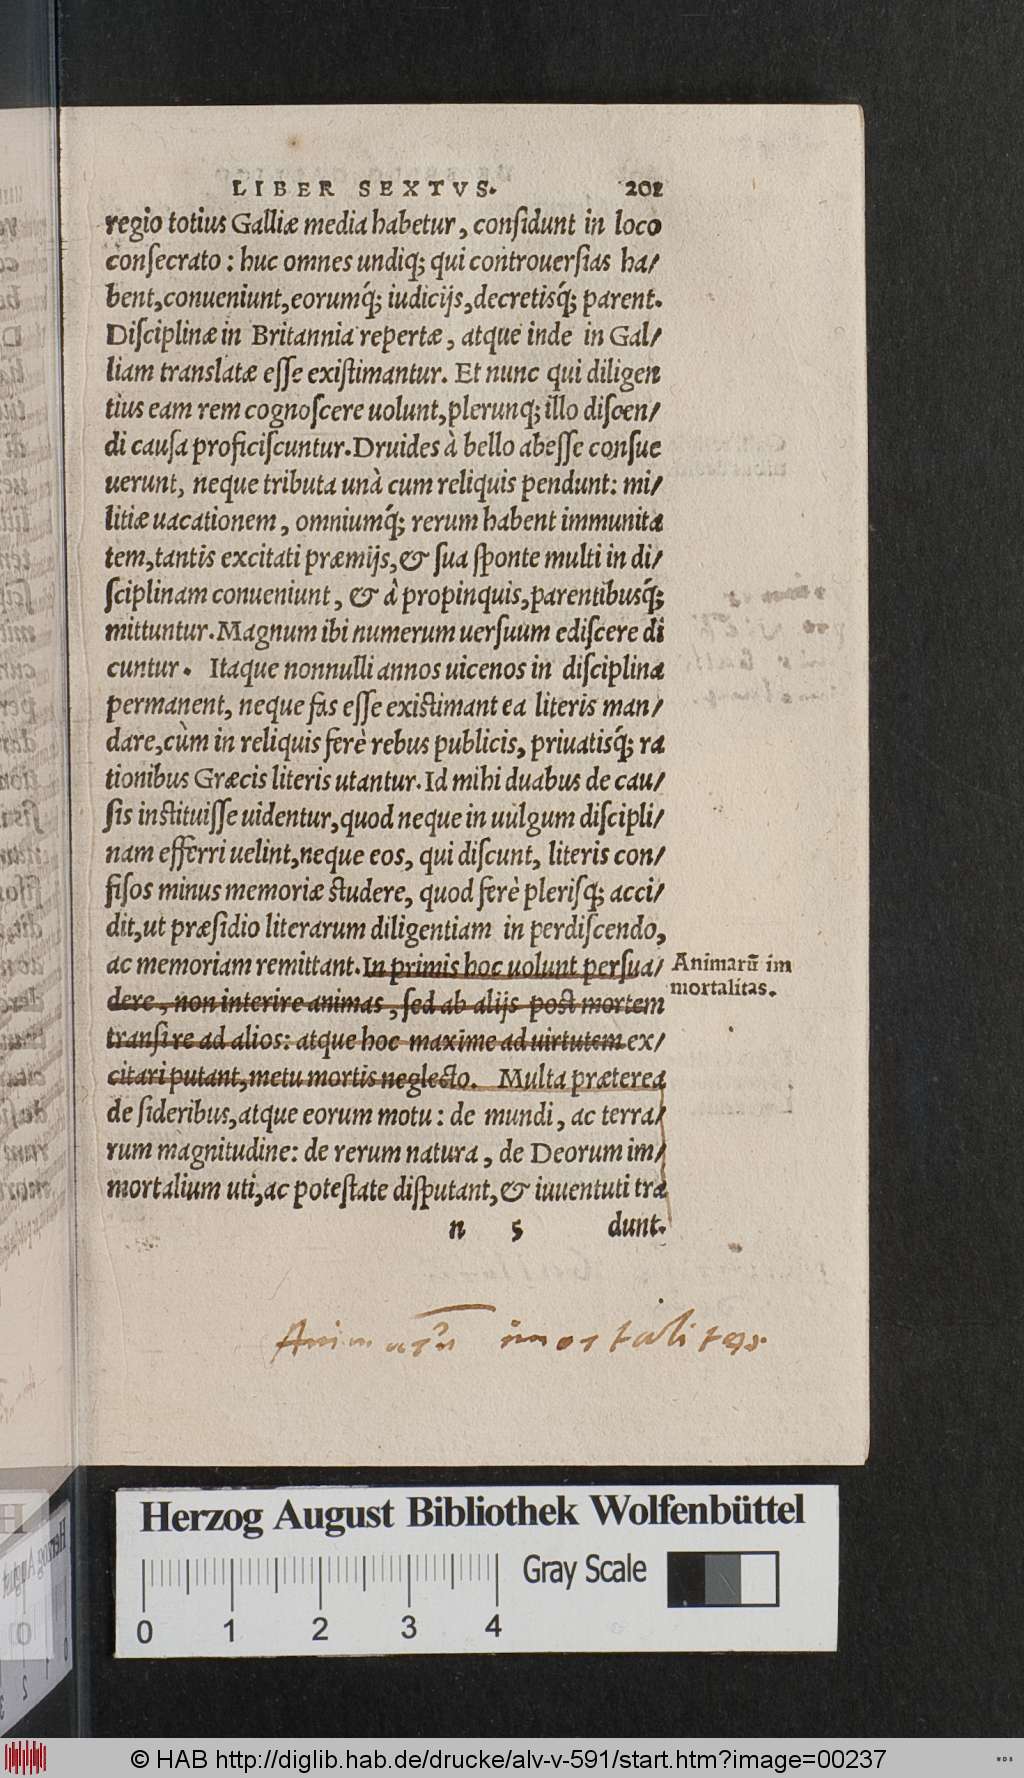 LIBER SEXTVS. 201
regio totius Galliæ media habetur, conſidunt in loco
conſecrato: huc omnes undiq; qui controuerſias ha/
bent, conueniunt, eorumq́; iudicijs, decretisq́; parent.
Diſciplinæ in Britannia repertæ, atque inde in Gal/
liam translatæ eſſe exiſtimantur. Et nunc qui diligen
tius eam rem cognoſcere uolunt, plerunq; illo diſcen/
di cauſa proficiſcuntur. Druides à bello abeſſe conſue
uerunt, neque tributa unà cum reliquis pendunt: mi/
litiæ uacationem, omniumq́; rerum habent immunita
tem, tantis excitati præmijs, & ſua ſponte multi in di/
ſciplinam conueniunt, & à propinquis, parentibusq́;
mittuntur. Magnum ibi numerum uerſuum ediſcere di
cuntur. Itaque nonnulli annos uicenos in diſciplina
permanent, neque fas eſſe exiſtimant ea literis man/
dare, cùm in reliquis ferè rebus publicis, priuatisq́; ra
tionibus Græcis literis utantur. Id mihi duabus de cau/
ſis inſtituiſſe uidentur, quod neque in uulgum diſcipli/
nam efferri uelint, neque eos, qui diſcunt, literis con/
fiſos minus memoriæ ſtudere, quod ferè pleriſq; acci/
dit, ut præſidio literarum diligentiam in perdiſcendo,
ac memoriam remittant. In primis hoc uolunt perſua/
dere, non interire animas, ſed ab alijs post mortem
tranſire ad alios: atque hoc maxime ad uirtutem ex/
citari putant, metu mortis neglecto. Multa præterea
de ſideribus, atque eorum motu: de mundi, ac terra/
rum magnitudine: de rerum natura, de Deorum im/
mortalium ui, ac poteſtate diſputant, & iuuentuti tra
n 5 dunt.
Animarũ im
mortalitas.
Animarũ im̃ortalitas.
Herzog August Bibliothek Wolfenbüttel
Gray Scale
0 1 2 3 4
© HAB http://diglib.hab.de/drucke/alv-v-591/start.htm?image=00237